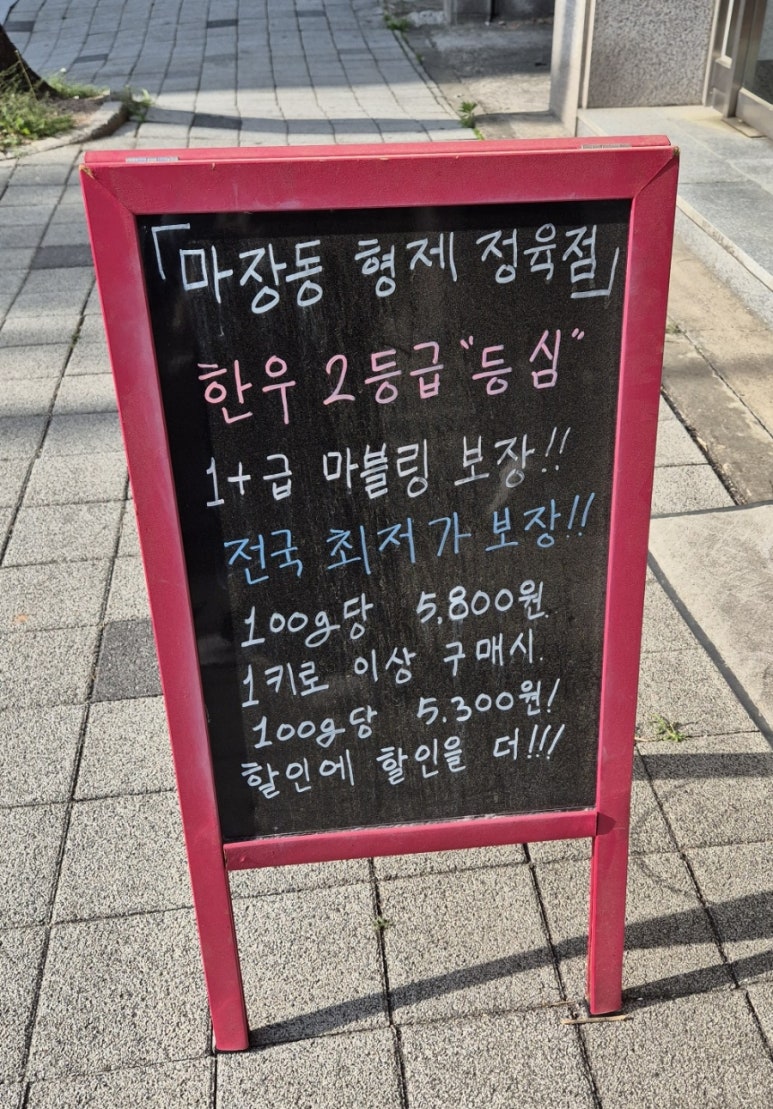 「마장동 형제 정육점」
한우 2등급 "등심"
1+급 마블링 보장!!
전국 최저가 보장!!
100g당 5,800원.
1키로 이상 구매시.
100g당 5.300원!
할인에 할인을 더!!!